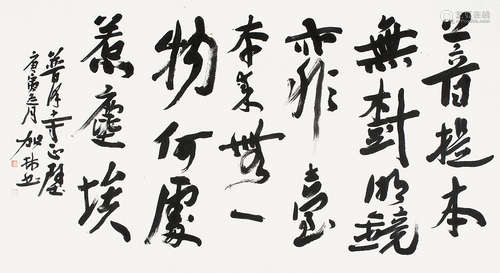 菩提本
無樹明鏡
亦非臺
本来無一
物何處
惹塵埃
寺正壁
庚寅 月